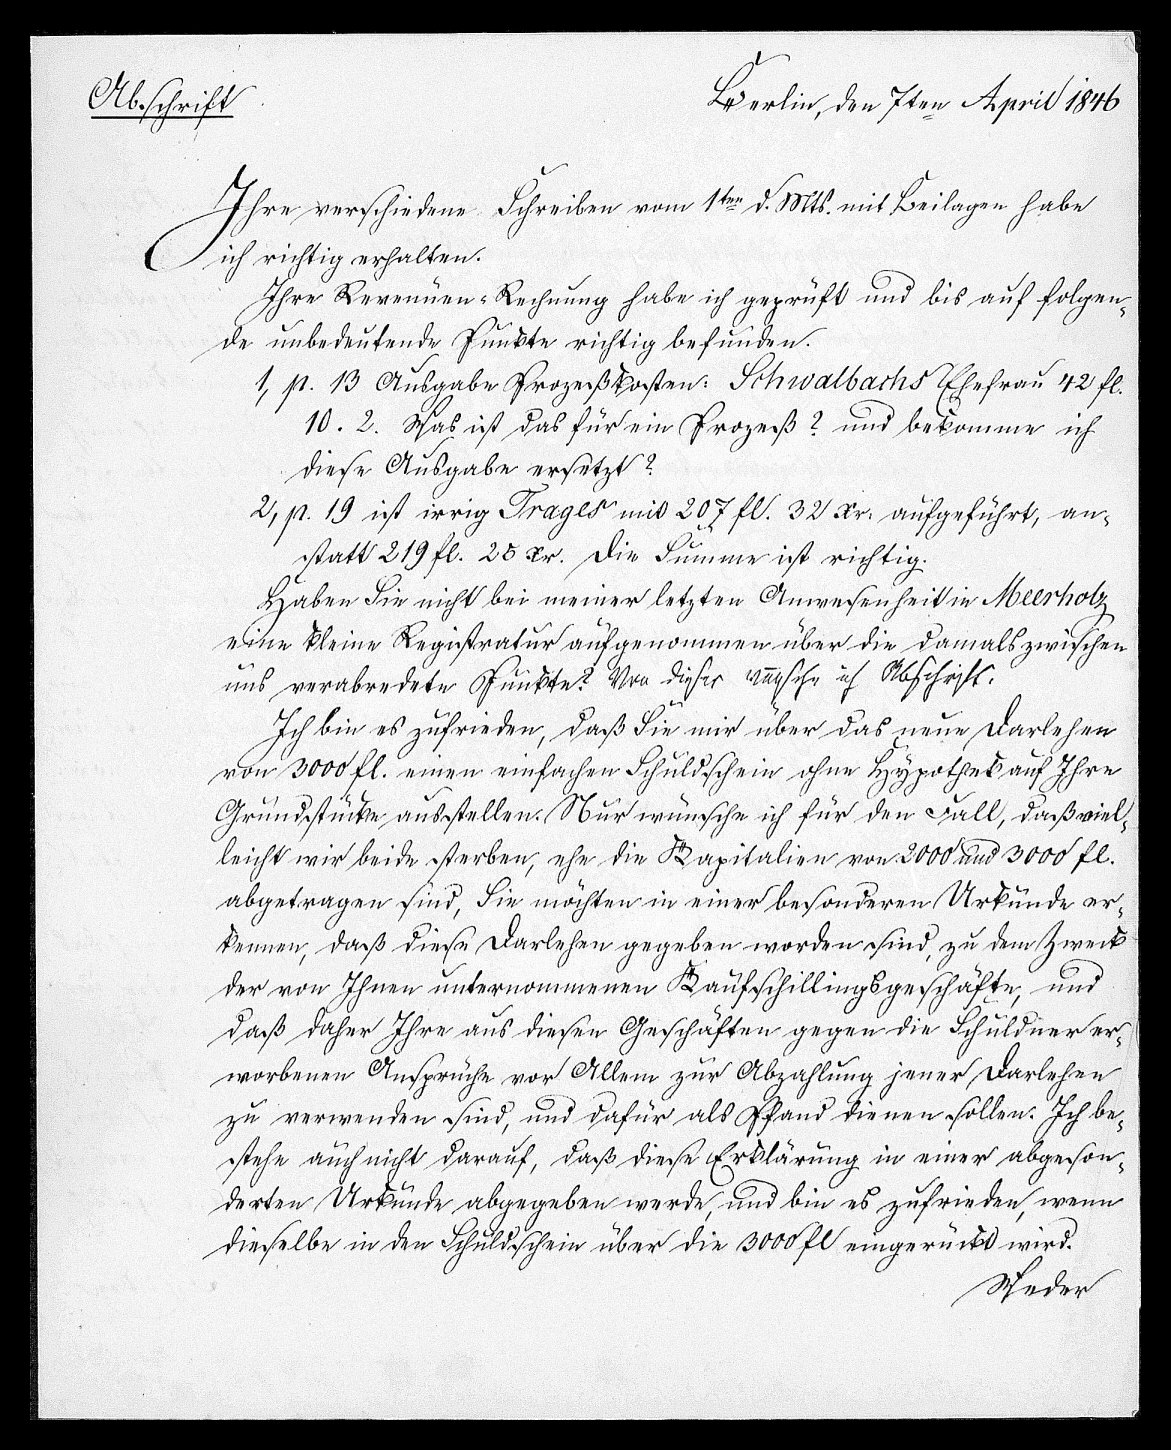 Abschrift
Berlin, den 7ten April 1846
Ihre verschiedene Schreiben vom 1ten d. Mts. mit Beilagen habe
ich richtig erhalten.
Ihre Revenüen-Rechnung habe ich geprüft und bis auf folgen-
de unbedeutende Punkte richtig befunden.
1, p. 13 Ausgabe Prozeßkosten: Schwalbachs Ehefrau 42 fl.
10. 2. Was ist das für ein Prozeß? und bekomme ich
diese Ausgabe ersetzt?
2, p. 19 ist irrig Trages mit 207 fl. 32 Xr. aufgeführt, an-
statt 219 fl. 25 Xr. Die Summe ist richtig.
Haben Sie nicht bei meiner letzten Anwesenheit in Meerholz
eine kleine Registratur aufgenommen über die damals zwischen
uns verabredete Punkte? Von dieser wünsche ich Abschrift.
Ich bin es zufrieden, daß Sie mir über das neue Darlehen
von 3000 fl. einen einfachen Schuldschein ohne Hypothek auf Ihre
Grundstücke ausstellen. Nur wünsche ich für den Fall, daß viel-
leicht wir beide sterben, ehe die Kapitalien von 2000 und 3000 fl.
abgetragen sind, Sie möchten in einer besonderen Urkunde er-
kennen, daß diese Darlehen gegeben worden sind, zu dem Zweck
der von Ihnen unternommenen Kaufschillingsgeschäfte, und
daß daher Ihre aus diesen Geschäften gegen die Schuldner er-
worbenen Ansprüche vor Allem zur Abzahlung jener Darlehen
zu verwenden sind, und dafür als Pfand dienen sollen. Ich be-
stehe auch nicht darauf, daß diese Erklärung in einer abgeson-
derten Urkunde abgegeben werde, und bin es zufrieden, wenn
dieselbe in den Schuldschein über die 3000 fl eingerückt wird.
Weder